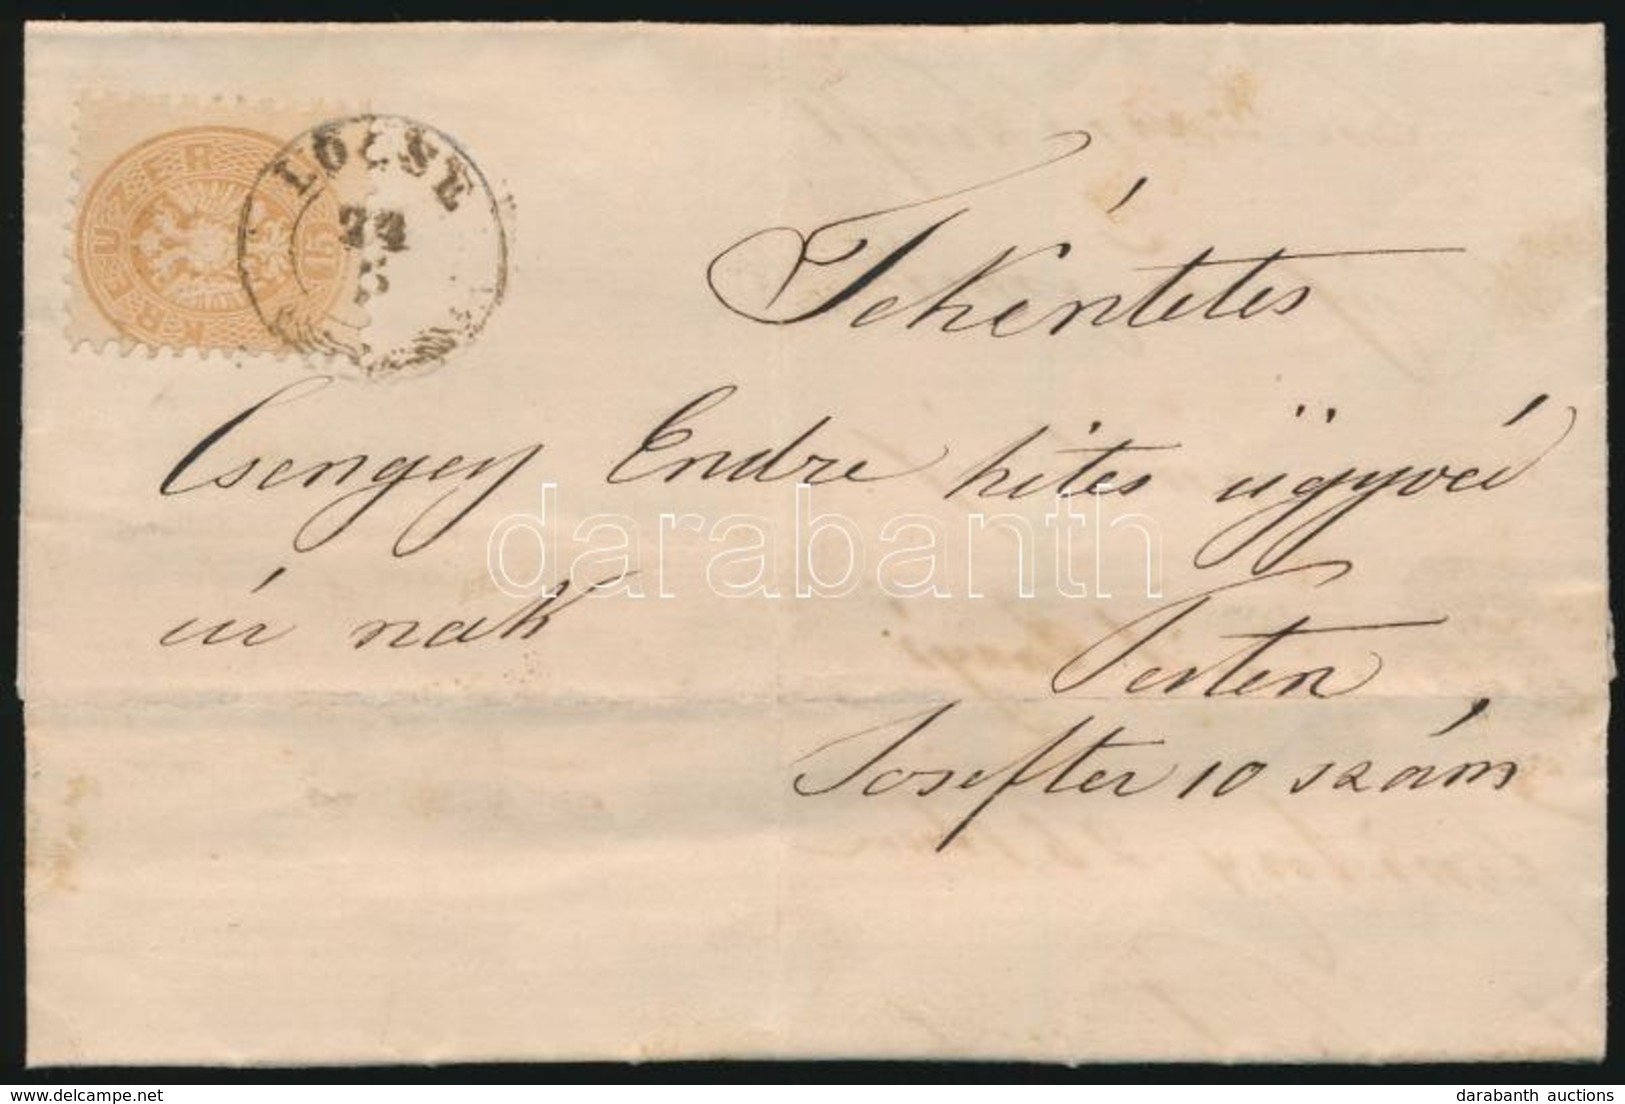 KREUZER 15
LŐCSE
Tekéntetes
Csengey Endre hites ügyvéd
úr nak
Pesten
Josefter 10 szám
darabanth
darabanth auctions